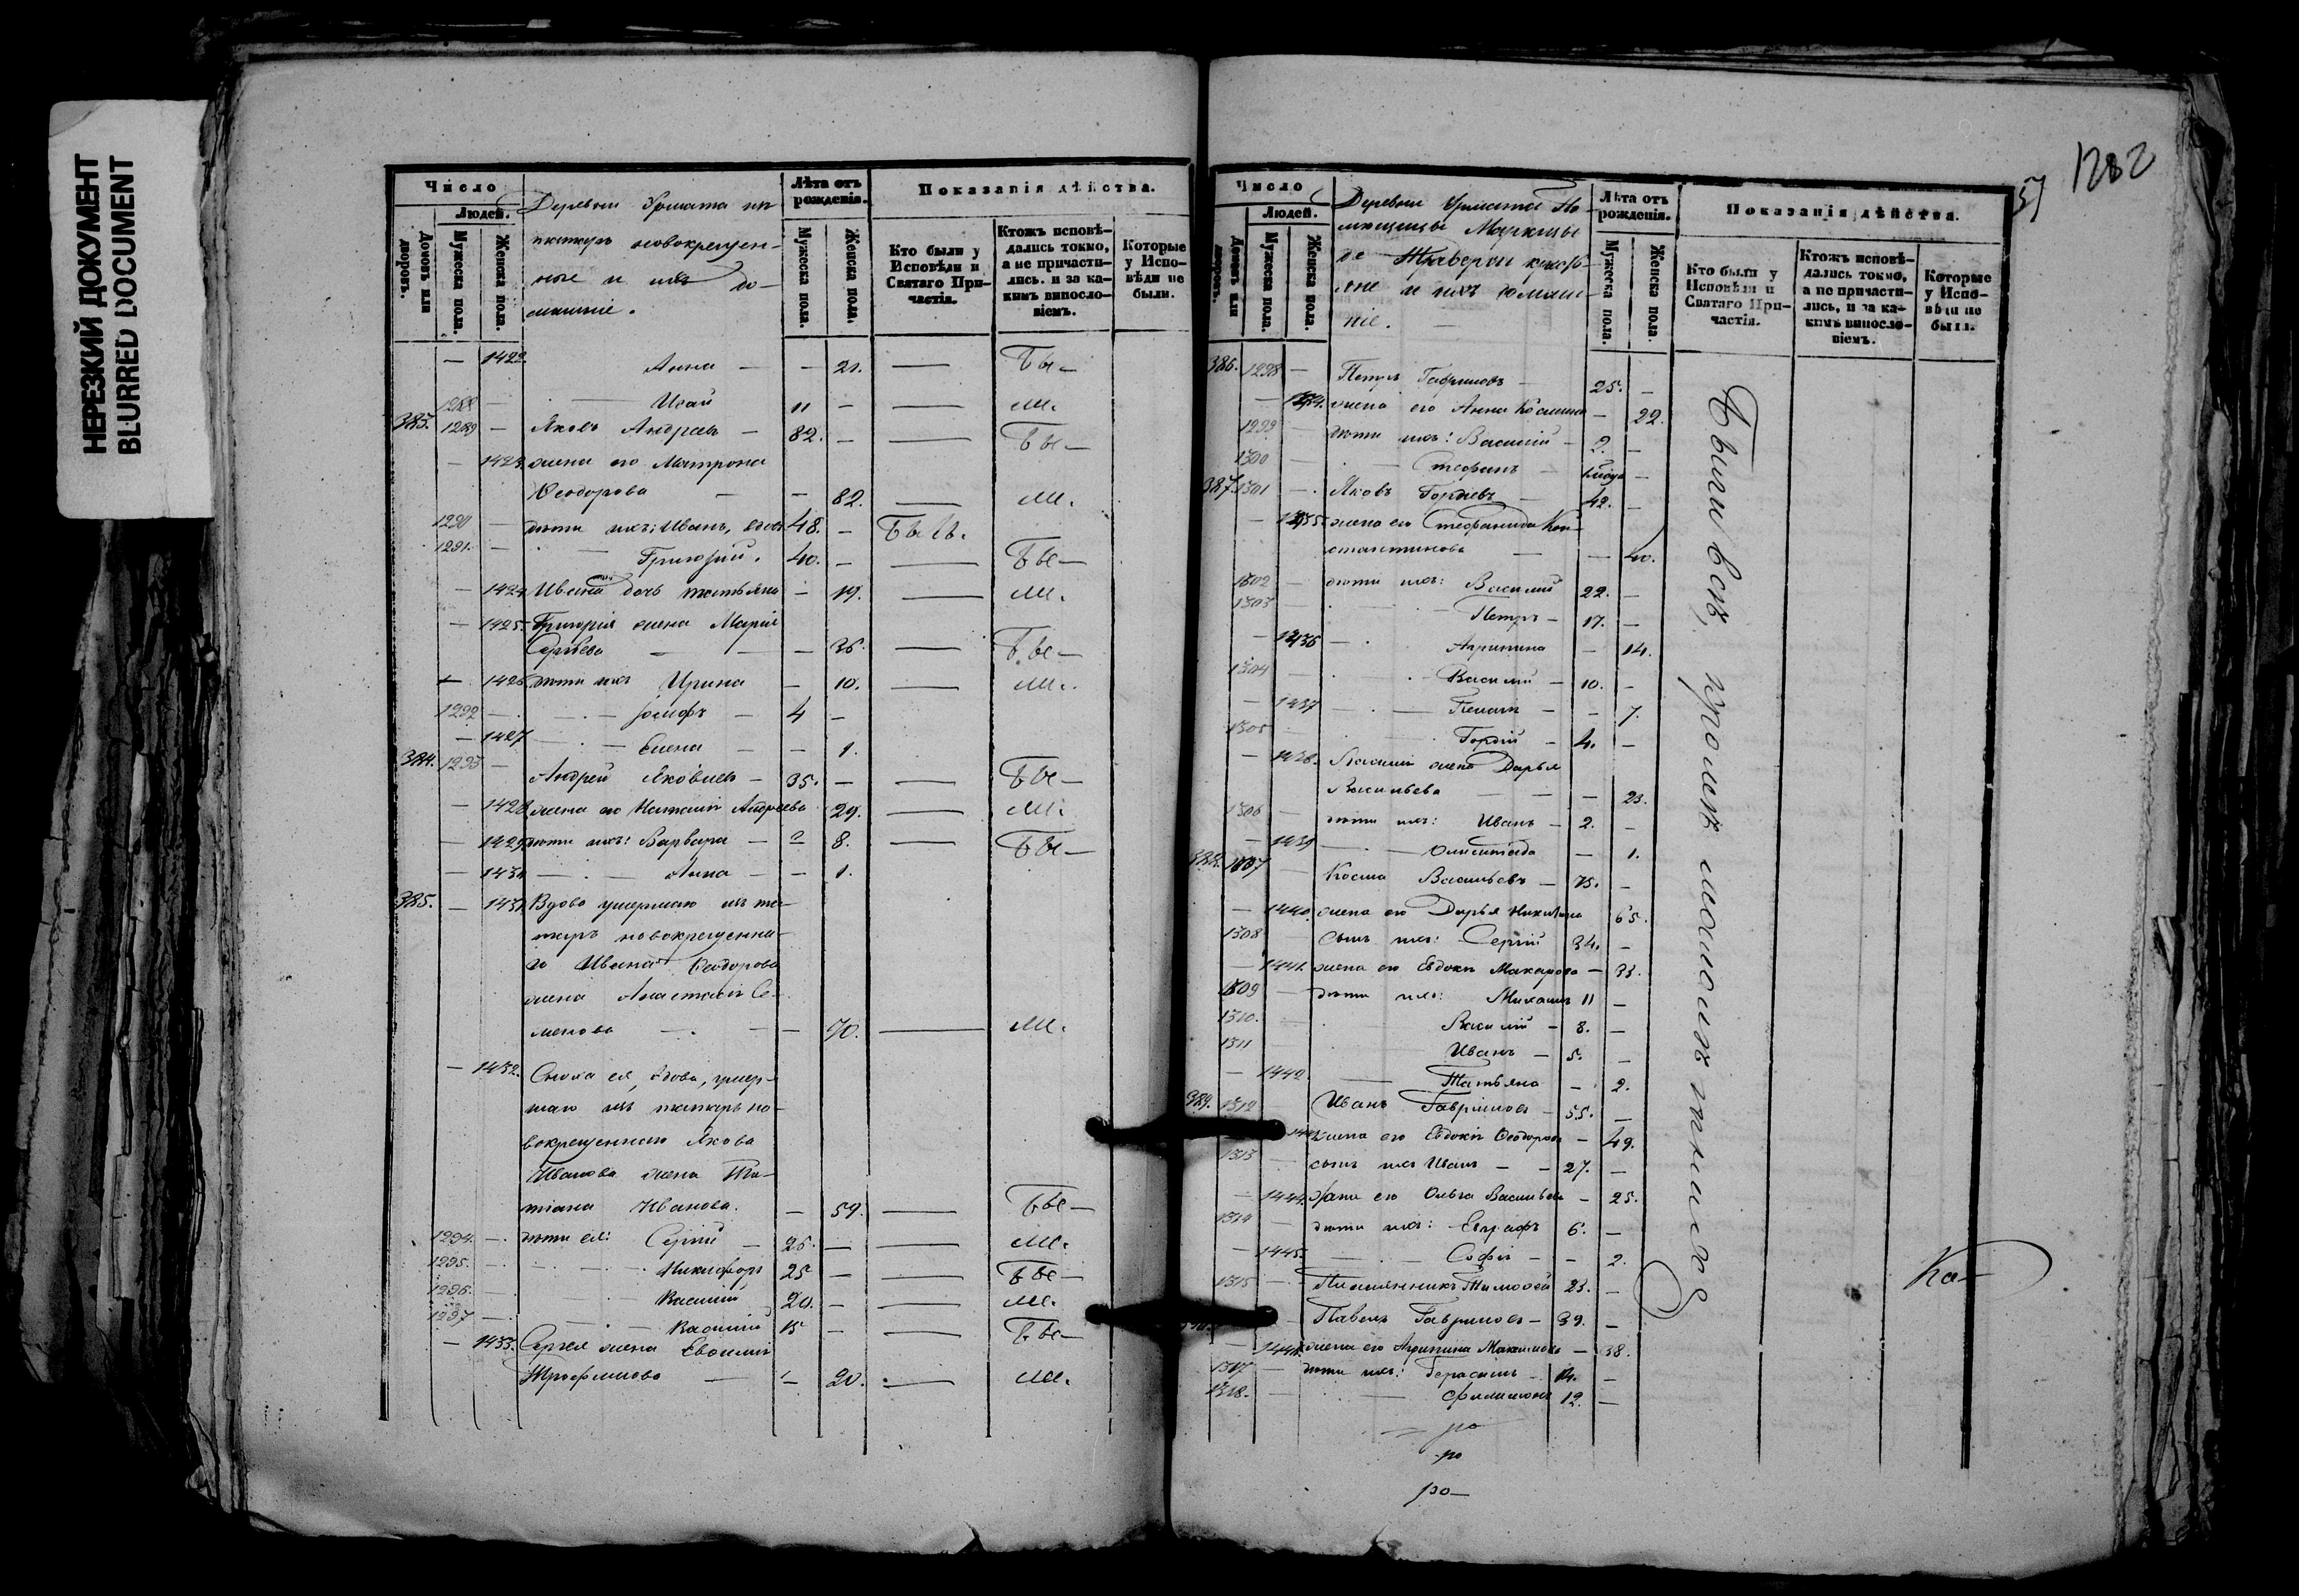 НЕРЕЗКИЙ ДОКУМЕНТ
BLURRED DOCUMENT
Число
Людей.
Домовъ или дворовъ.
Мужеска пола.
Женска пола.
Деревни
новокрещен-
ные и ихъ до-
машніе.
Лѣта отъ рожденія.
Мужеска пола.
Женска пола.
Показанія дѣйства.
Кто были у Исповѣди и Святаго Причастія.
Ктожъ исповѣ-
дались токмо,
а не причасти-
лись, и за ка-
кимъ винословіемъ.
Которые у Испо-
вѣди не были.
— Анна — — 21. — Бы—
1288 — Исай 11 — — ли.
1289 — Яковъ Андреевъ — 82. — — Бы—
— 1423. жена его Матрона
Ѳеодорова — — 82. — ли.
1290 — дѣти ихъ: Иванъ, вдовъ 48. — Былъ.
1291. — Григорій. 40. — — Бы—
— 1424 Ивана дочь Татьяна — 19. — ли.
— 1425. Григорія жена Марія
Сергѣева — — 36. — Бы—
— 1426 дѣти ихъ Ирина — 10. — ли.
1292 — Іосифъ — 4 —
— 1427 — Елена — — 1.
384. 1293 — Андрей Яковлевъ — 35. — — Бы—
— 1428 жена его Наталія Андреева 29. — ли.
— 1429 дѣти ихъ: Варвара — 8. — Бы—
— 1430 — Анна — — 1.
385. — 1431 Вдова умершаго изъ та-
таръ новокрещенна-
го Ивана Ѳеодорова
жена Анастасія Се-
менова — — 70. — ли.
— 1432. Сноха ея, вдова, умер-
шаго изъ татаръ но-
вокрещеннаго Якова
Иванова жена Та-
тіана Иванова. — 59. — Бы—
1294. — дѣти ея: Сергій — 26. — — ли.
1295. — Никифоръ 25 — — Бы—
1296. — Василій 20. — — ли.
1297 — Василій 15 — — Бы—
— 1433. Сергѣя жена Евѳимія
Трофимова — — 20. — ли.
1282
Число
Людей.
Домовъ или дворовъ.
Мужеска пола.
Женска пола.
Деревни Урмата По-
мѣщицы Маркизы
де Траверси кресть-
яне и ихъ домаш-
ніе.
Лѣта отъ рожденія.
Мужеска пола.
Женска пола
Показанія дѣйства.
Кто были у Исповѣди и Святаго Причастія.
Ктожъ исповѣ-
дались токмо,
а не причасти-
лись, и за ка-
кимъ винословіемъ.
Которые у Испо-
вѣди не были.
386. 1298 — Петръ Гавриловъ — 25. —
— 1434. жена его Анна Космина — 22.
1299 — дѣти ихъ: Василій — 2. —
1300 — Стефанъ —
387 1301 — Яковъ Гордѣевъ — 42. —
— 1435 жена его Стефанида Кон-
стантинова — — 40.
1302 — дѣти ихъ: Василій 22. —
1303 — Петръ — 17. —
— 1436 — Агрипина — 14.
1304 — Василій — 10. —
— 1437 — — — 7.
1305 — Гордій — 4. —
— 1438. Василія жена Дарья
Васильева — — 23.
1306 — дѣти ихъ: Иванъ — 2. —
— 1439 — — 1.
388. 1307 — Косма Васильевъ — 75. —
— 1440. жена его Дарья Никитина 65.
1308 — сынъ ихъ: Сергій 34. —
— 1441. жена его Евдокія Макарова — 33.
1309 — дѣти ихъ: Михаилъ 11 —
1310. — Василій — 8. —
1311 — Иванъ — 5. —
— 1442. — Татьяна — 2.
389. 1312 — Иванъ Гавриловъ — 55. —
жена его Евдокія Ѳеодорова — 49.
1313 — сынъ ихъ Иванъ — — 27. —
— 1444. жена его Ольга Васильева — 25.
1314 — дѣти ихъ: Евграфъ 6. —
— 1445. — Софія — — 2.
1315 — Племянникъ Тимоѳей 23. —
— Павелъ Гавриловъ — 39. —
— жена его Агрипина Максимова — 38.
1317 — дѣти ихъ: Герасимъ — 14. —
1318. — Филимонъ 12. —
Были всѣ, кромѣ малолѣтнихъ
Ка—
ро
ро
ро—